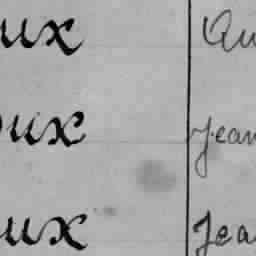 ux
oux Jean
ux Jea